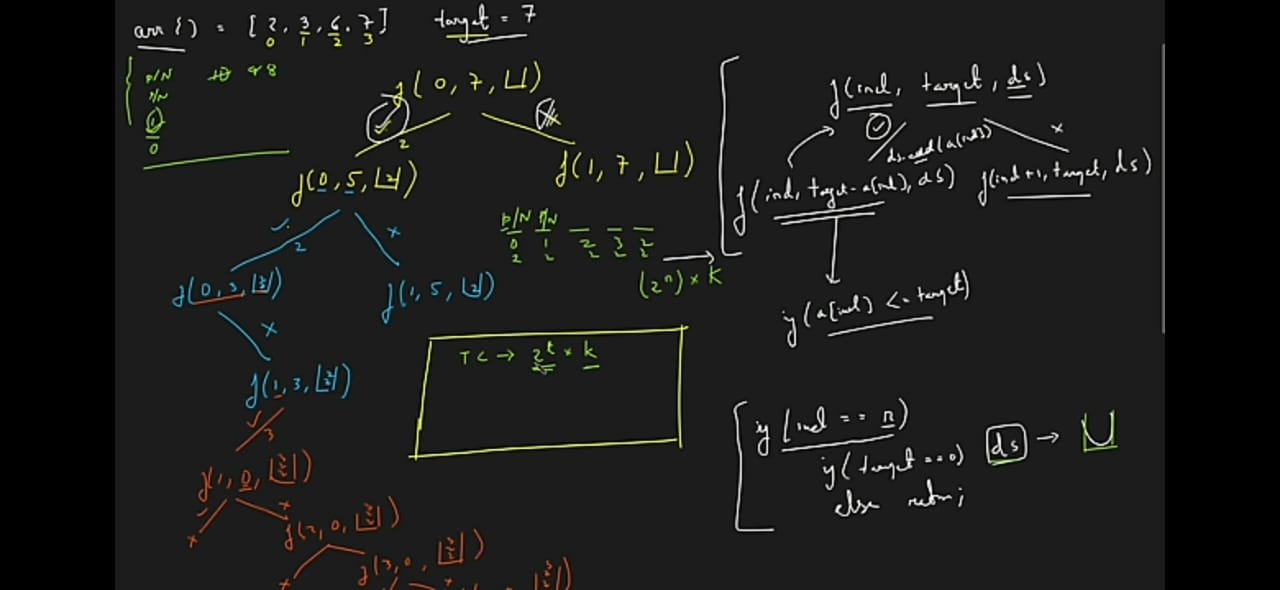 arr[] = [2, 3, 6, 7] target = 7
0 1 2 3
P/N 10 98
P/N
1
0
f(0, 7, [ ])
2
f(0, 5, [2])
f(1, 7, [ ])
2
f(0, 3, [2 2])
f(1, 5, [2])
x
x
f(1, 3, [2 2])
3
f(1, 0, [3 2 2])
x
x
f(2, 0, [3 2 2])
x
f(3, 0, [3 2 2])
P/N P/N _ _ _
0 1 2 3 2
2 2 2 2 2
(2^n) × k
TC → 2^t × k
f(ind, target, ds)
ds.add(a[ind])
x
f(ind, target-a[ind], ds)
f(ind+1, target, ds)
if (a[ind] <= target)
if (ind == n)
if (target == 0) ds →
else return;